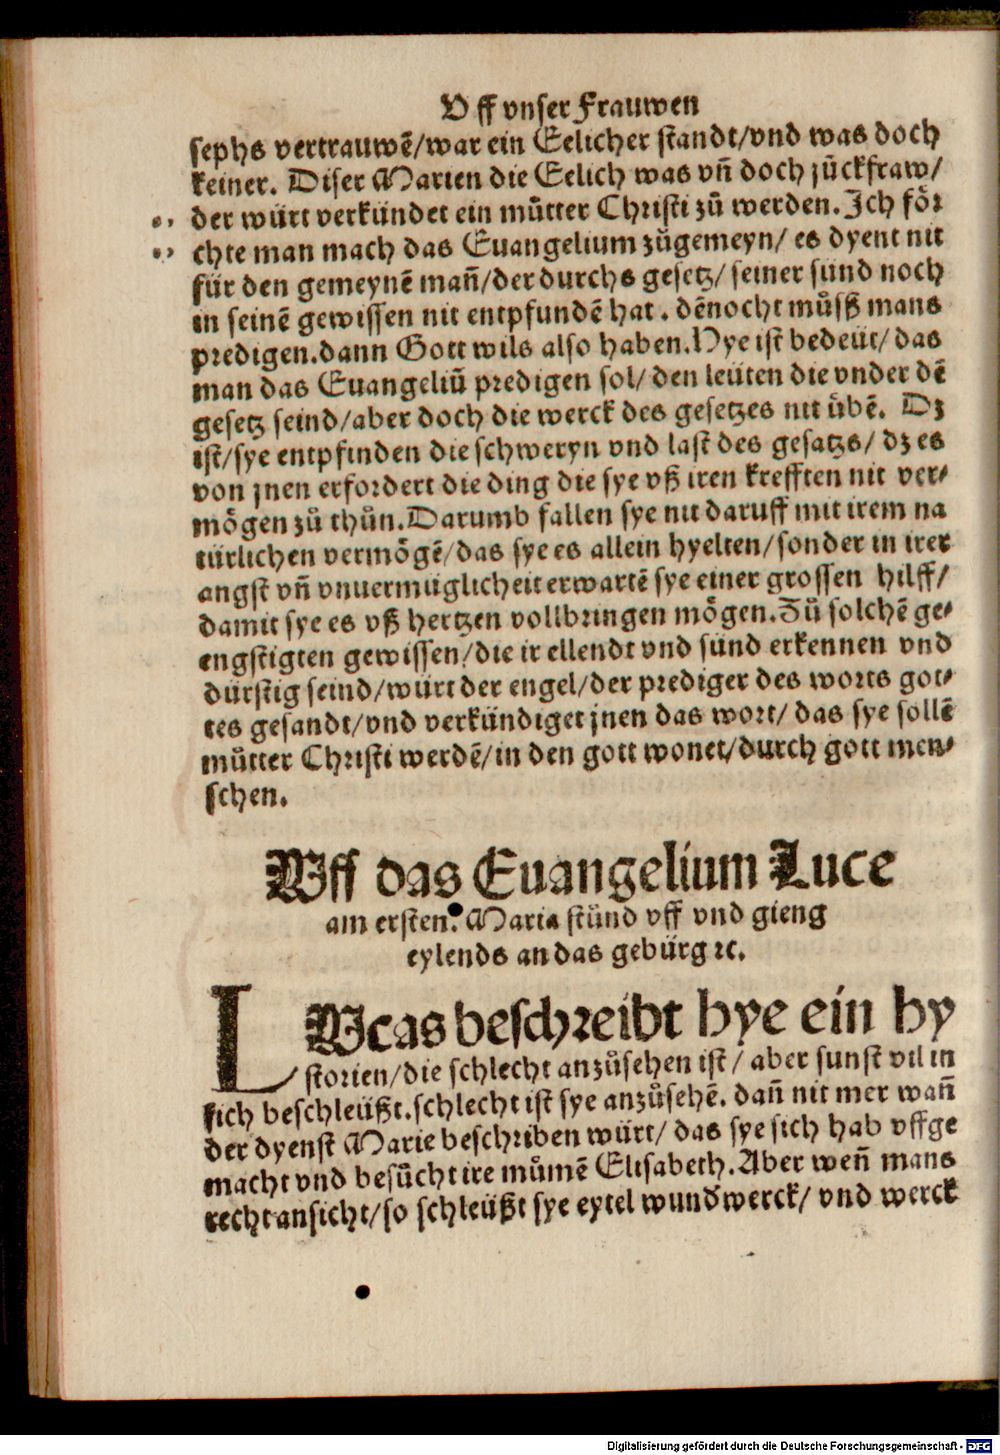 Vff vnser Frauwen
sephs vertrauwē/war ein Eelicher standt/vnd was doch
keiner. Diser Marien die Eelich was vñ doch jūckfraw/
der würt verkündet ein můtter Christi zů werden. Ich för
chte man mach das Euangelium zůgemeyn/ es dyent nit
für den gemeynē mañ/der durchs gesetz/ seiner sünd noch
in seinē gewissen nit entpfundē hat. dēnocht můsß mans
predigen.dann Gott wils also haben.Hye ist bedeüt/ das
man das Euangeliū predigen sol/ den leüten die vnder dē
gesetz seind/aber doch die werck des gesetzes nit übē. Dz
ist/sye entpfinden die schweryn vnd last des gesatzs/ dz es
von jnen erfordert die ding die sye vß iren krefften nit ver⸗
mögen zů thůn.Darumb fallen sye nit daruff mit irem na
türlichen vermögē/das sye es allein hyelten/sonder in irer
angst vñ vnuermüglicheit erwartē sye einer grossen hilff/
damit sye es vß hertzen vollbringen mögen.Zů solchē ge⸗
engstigten gewissen/die ir ellendt vnd sünd erkennen vnd
dürstig seind/würt der engel/der prediger des worts got⸗
tes gesandt/vnd verkündiget jnen das wort/ das sye sollē
můtter Christi werdē/in den gott wonet/durch gott men⸗
schen.
Vff das Euangelium Luce
am ersten. Maria stůnd vff vnd gieng
eylends an das gebürg ꝛc.
LVcas beschreibt hye ein hy
storien/die schlecht anzůsehen ist/ aber sunst vil in
sich beschleüßt.schlecht ist sye anzůsehē. dañ nit mer wañ
der dyenst Marie beschriben würt/ das sye sich hab vffge
macht vnd besůcht ire můmē Elisabeth.Aber weñ mans
recht ansicht/so schleüßt sye eytel wundwerck/ vnd werck
Digitalisierung gefördert durch die Deutsche Forschungsgemeinschaft - DFG